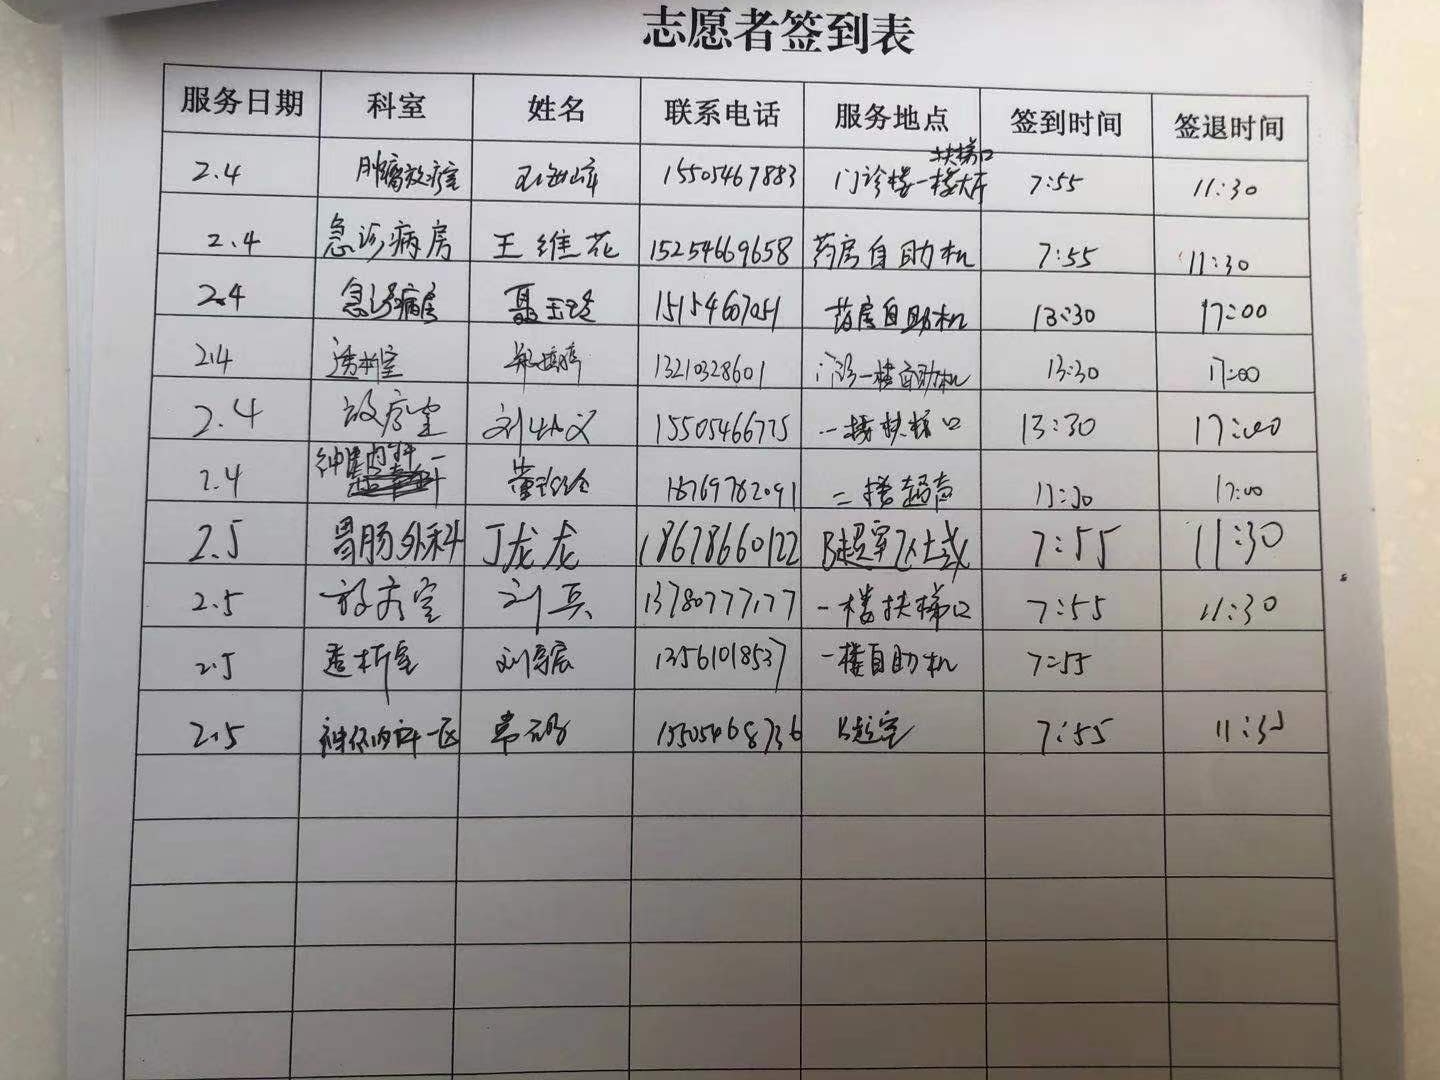 志愿者签到表
服务日期 科室 姓名 联系电话 服务地点 签到时间 签退时间
2.4 肿瘤放疗室 15505467883 门诊楼一楼大厅 扶梯口 7:55 11:30
2.4 急诊病房 王维花 15254669658 药房自助机 7:55 11:30
2.4 急诊病房 聂玉玲 15154607051 药房自助机 13:30 17:00
2.4 透析室 13210328601 门诊一楼自助机 13:30 17:00
2.4 放疗室 刘 15505466775 一楼扶梯口 13:30 17:00
2.4 神经内科一 18769782091 二楼超声 13:30 17:00
2.5 胃肠外科 丁龙龙 18678660122 B超室 7:55 11:30
2.5 放疗室 刘兵 13780777177 一楼扶梯口 7:55 11:30
2.5 透析室 刘 13561018537 一楼自助机 7:55
2.5 神经内科一区 常 15505468736 B超室 7:55 11:30